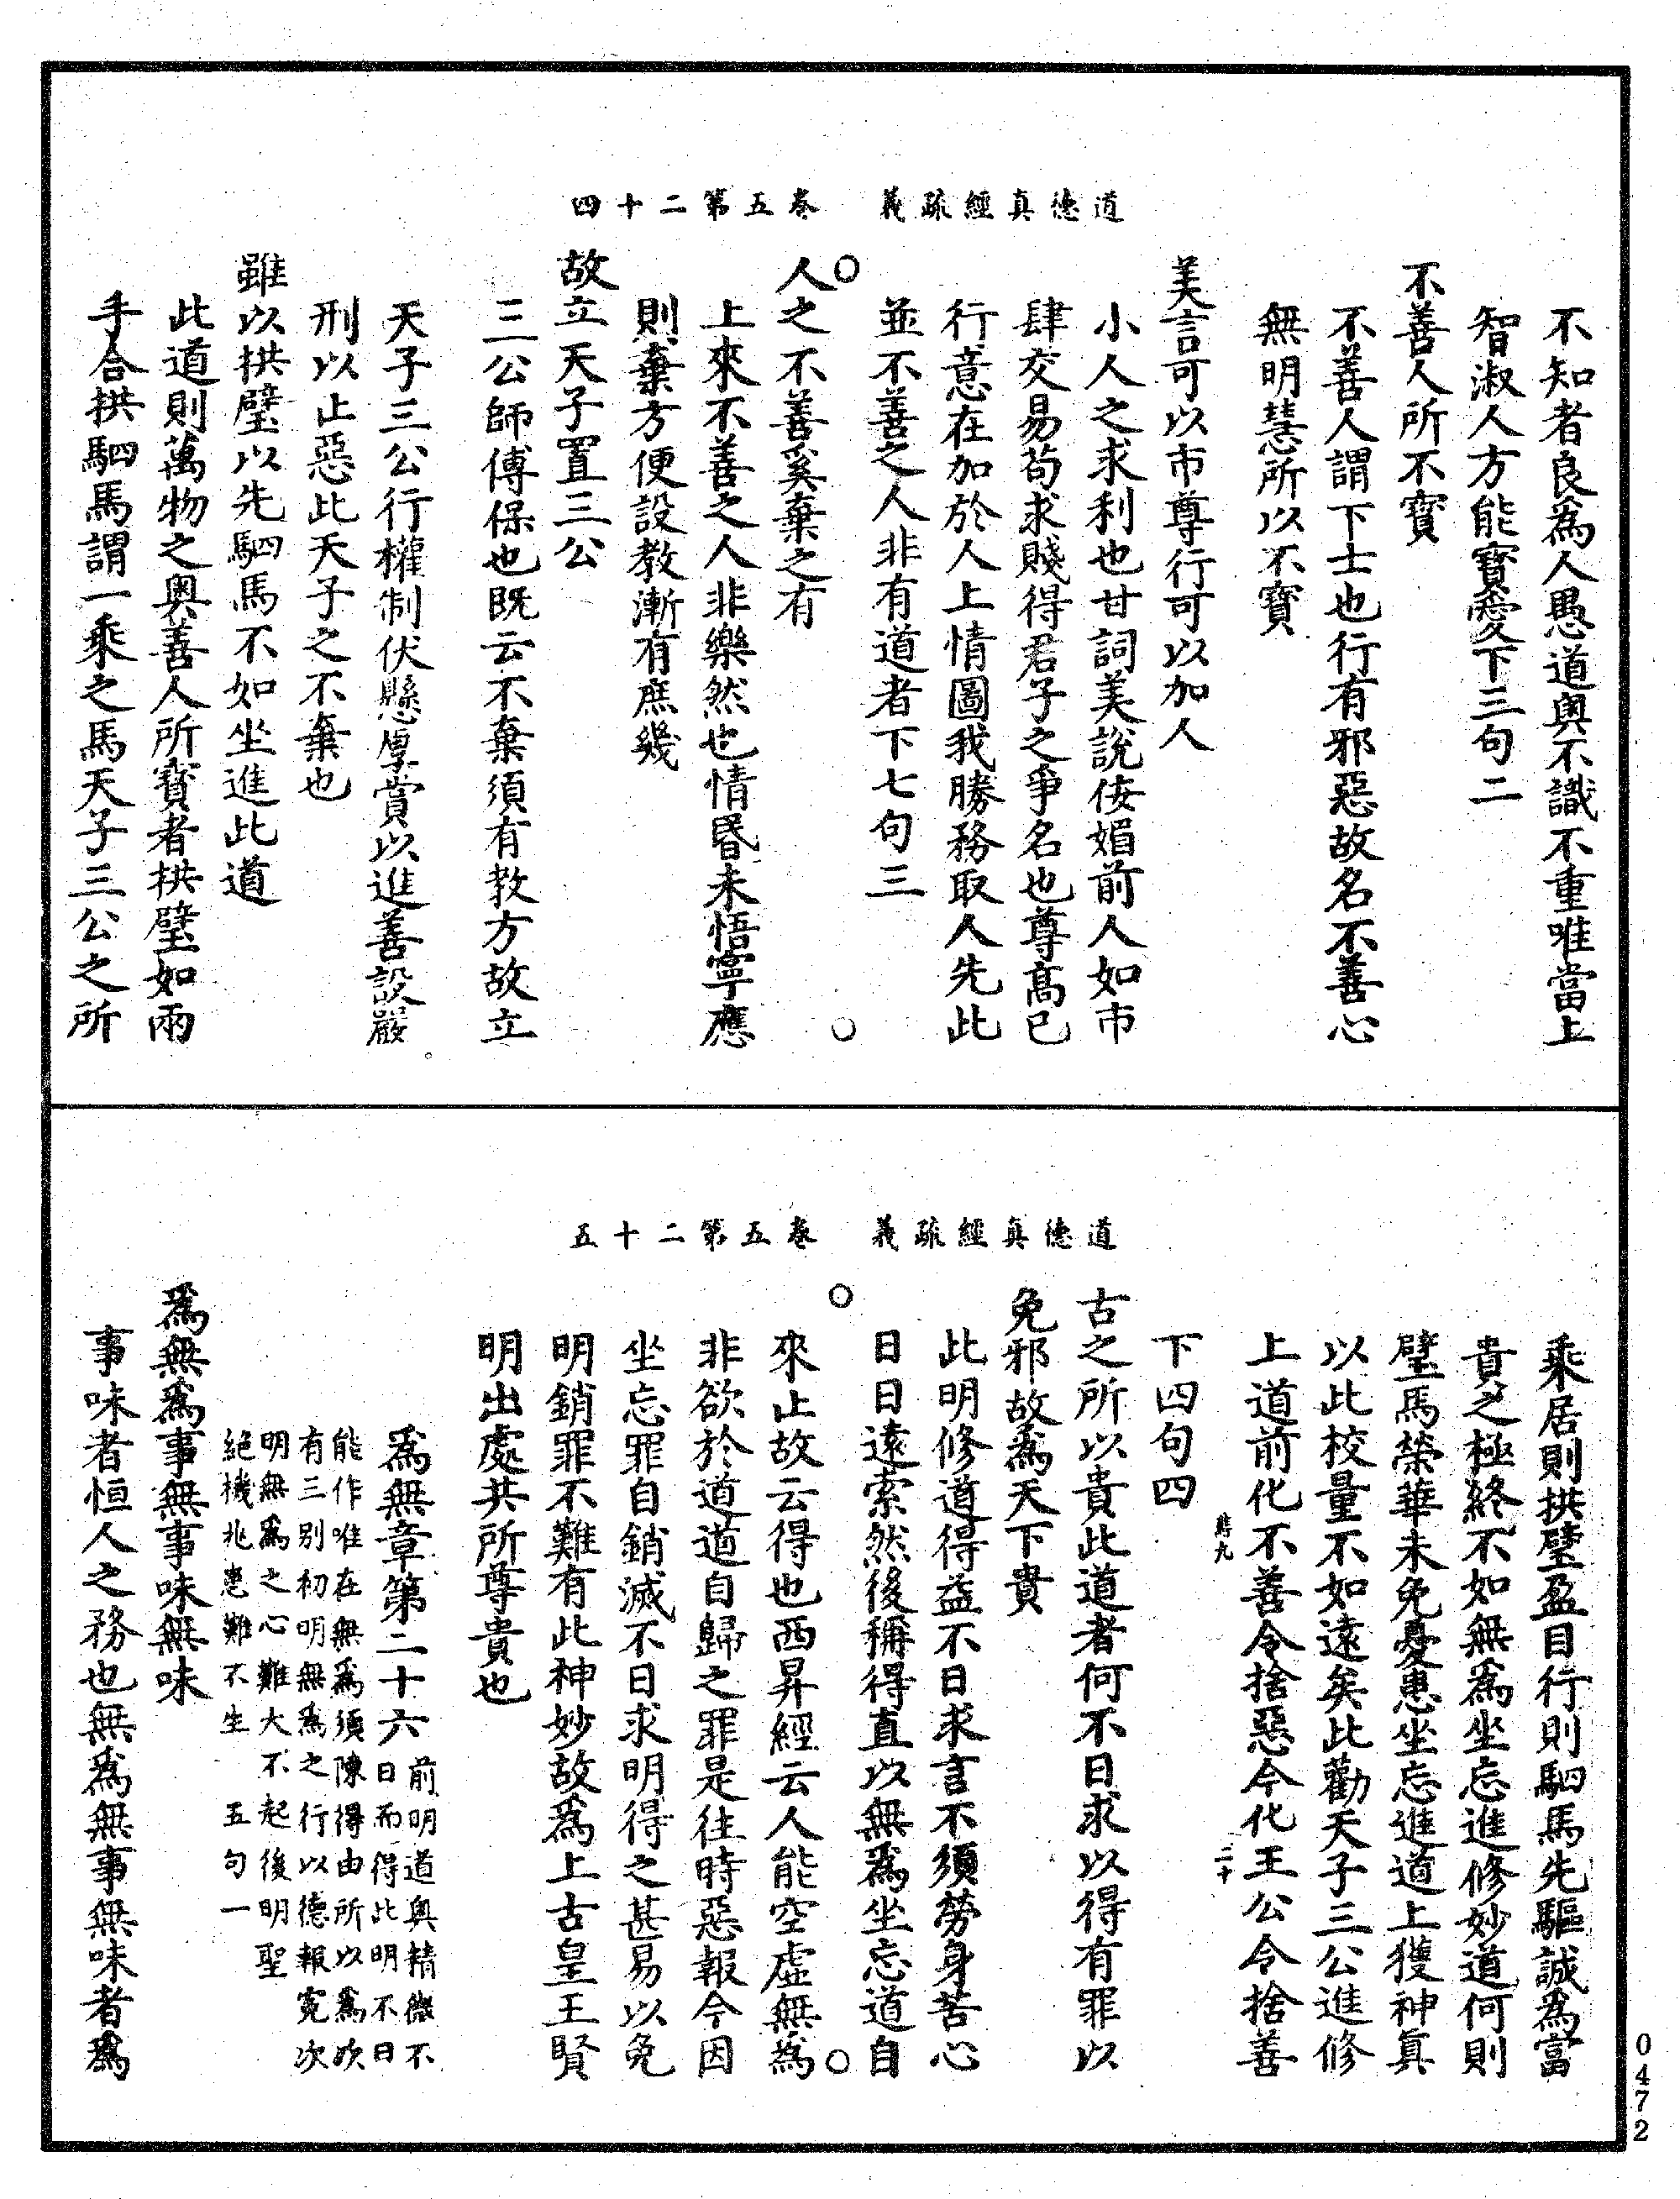 道德真經疏義　卷五第二十四
不知者良為人愚道奧不識不重唯當上
智淑人方能寶愛下三句二
不善人所不寶
不善人謂下士也行有邪惡故名不善心
無明慧所以不寶
美言可以市尊行可以加人
小人之求利也甘詞美說佞媚前人如市
肆交易苟求賤得君子之爭名也尊高已
行意在加於人上情圖我勝務取人先此
並不善之人非有道者下七句三
人之不善奚棄之有
上來不善之人非樂然也情昬未悟寧應
則棄方便設教漸有庶幾
故立天子置三公
三公師傅保也既云不棄須有教方故立
天子三公行權制伏懸厚賞以進善設嚴
刑以止惡此天子之不棄也
雖以拱璧以先駟馬不如坐進此道
此道則萬物之奧善人所寶者拱璧如兩
手合拱駟馬謂一乘之馬天子三公之所
道德真經疏義　卷五第二十五
乘居則拱璧盈目行則駟馬先驅誠為富
貴之極終不如無為坐忘進修妙道何則
璧馬榮華未免憂患坐忘進道上獲神真
以此校量不如遠矣此勸天子三公進修
上道前化不善令捨惡今化王公令捨善
下四句四
古之所以貴此道者何不日求以得有罪以
免邪故為天下貴
此明修道得益不日求言不須勞身苦心
日日遠索然後稱得直以無為坐忘道自
來止故云得也西昇經云人能空虛無為
非欲於道道自歸之罪是往時惡報今因
坐忘罪自銷滅不日求明得之甚易以免
明銷罪不難有此神妙故為上古皇王賢
明出處共所尊貴也
為無章第二十六前明道奧精微不
日而得此明不日
能作唯在無為須陳得由所以為次
有三別初明無為之行以德報寃次
明無為之心難大不起後明聖
絕機兆患難不生　五句一
為無為事無事味無味
事味者恒人之務也無為無事無味者為
二十
0472